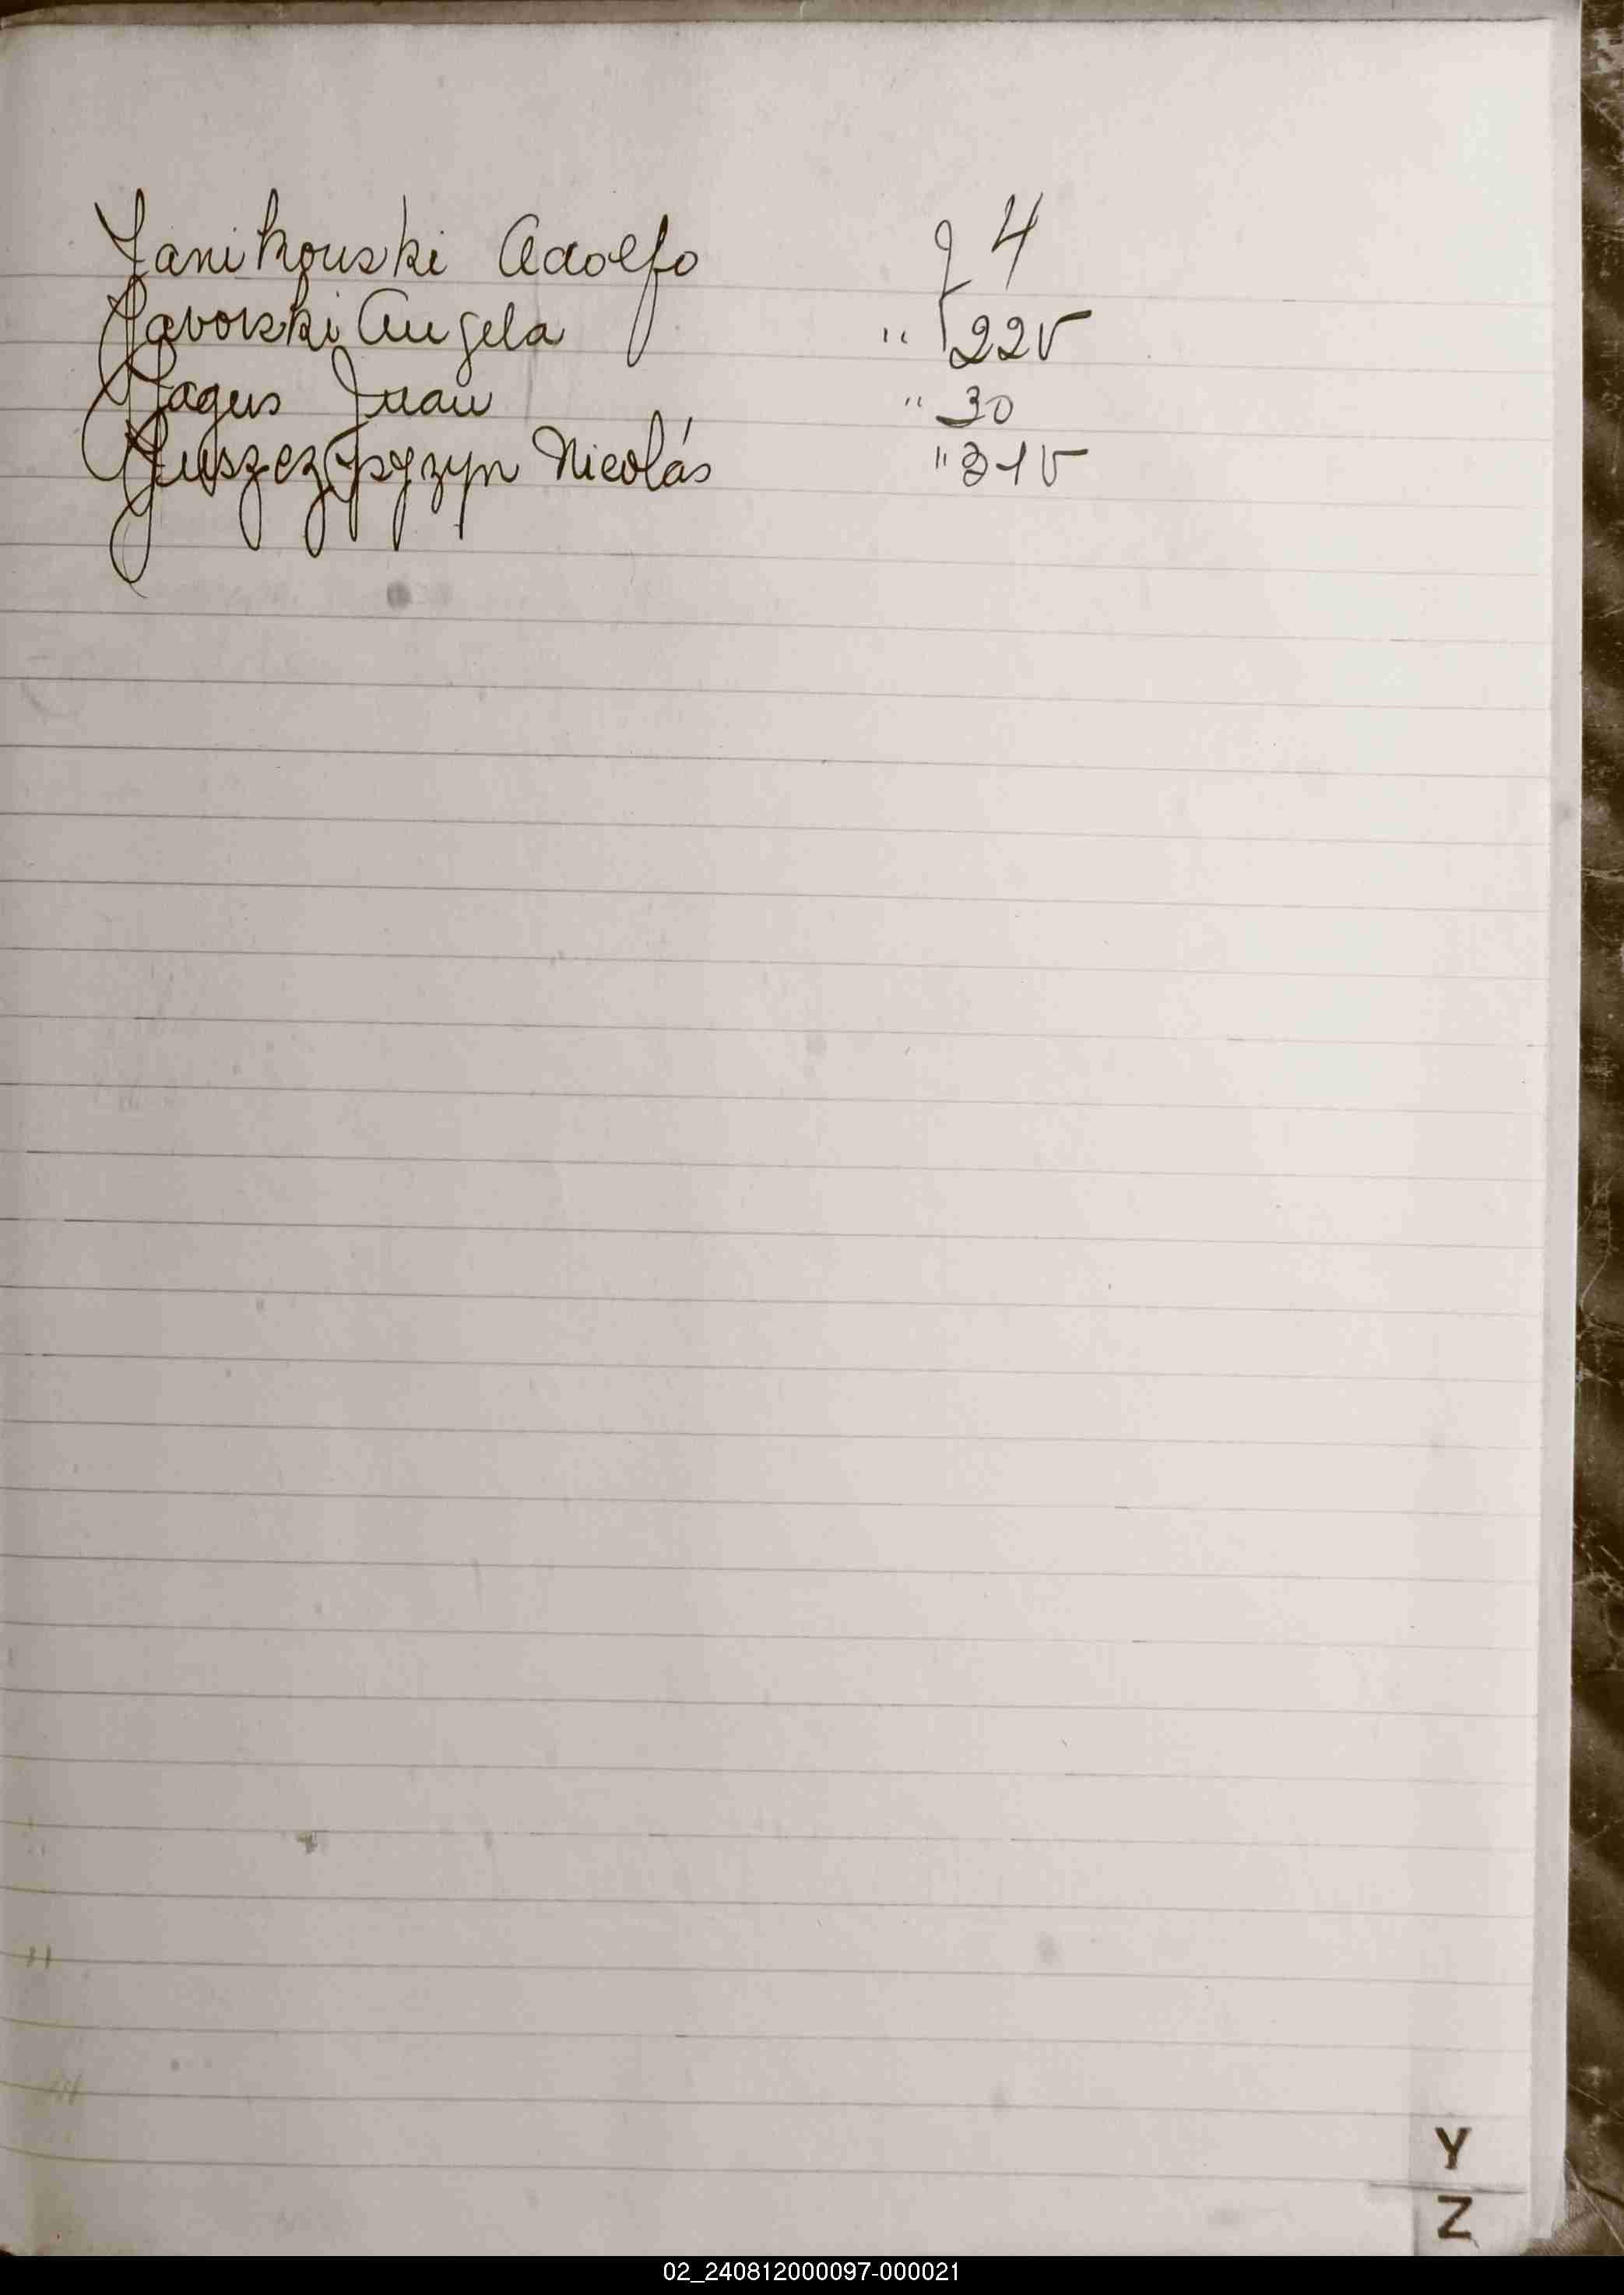 Yanikouski Adolfo f 4
Yavorski Angela " 22v
Yagus Juan " 30
Nicolás " 31v
Y
Z
02_240812000097-000021